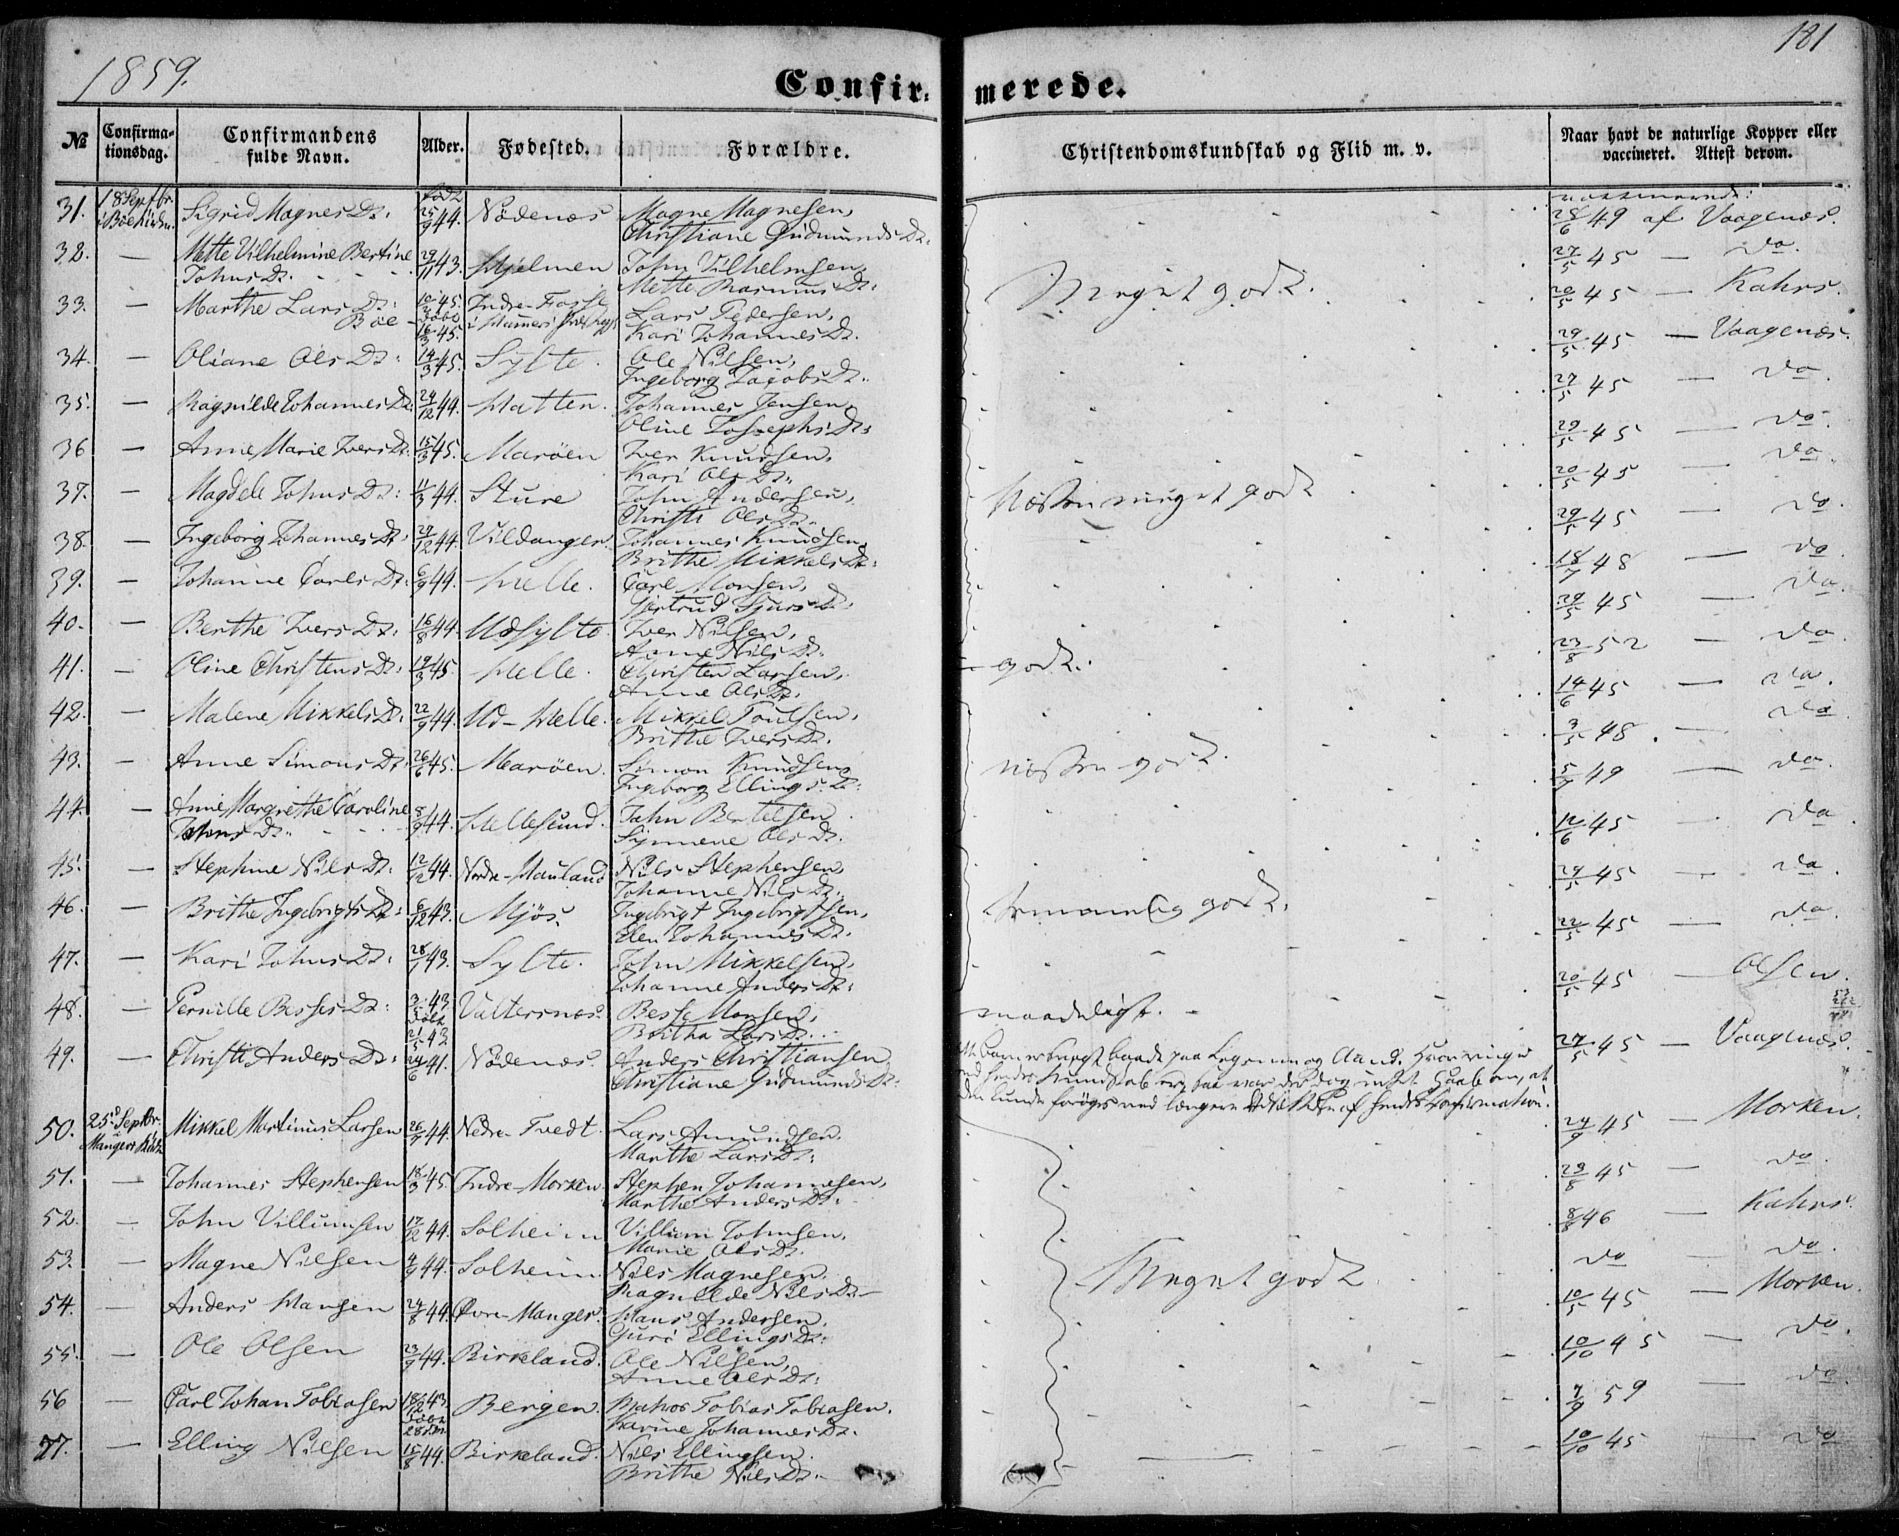 1859.
181
Confir= merede.
№ Confirma-tionsdag. Confirmandens fulde Navn. Alder. Fødested. Forældre. Christendomskundskab og Flid m. v. Naar havt de naturlige Kopper eller vaccineret. Attest derom.
31. 18 Septbr i Bøe Kirke. Sigrid Magnes Dr. født 25/9 44. Nødenæs Magne Magnesen, Christiane Gudmunds Dr. 28/6 49 af Vaagenæs.
32. — Mette Vilhelmine Bertine Johns Dr. 29/11 43. Hjelmen John Vilhelmsen, Mette Rasmus Dr. 27/5 45 — do.
33. — Marthe Lars Dr. Bøe Indre Fosse i Hammers Lars Pedersen, Kari Johannes Dr. Meget godt. 20/5 45 — Kahrs.
34. — Oliane Ols Dr. 14/3 45. Sylte. Ole Nilsen, Ingeborg Jacobs Dr. 29/5 45 — Vaagenæs.
35. — Ragnilde Johannes Dr. 24/12 44. Hatten. Johannes Jensen, Oline Josephs Dr. 27/5 45 — do.
36 — Anne Marie Ivers Dr. 15/3 45. Marøen Iver Knudsen, Kari Ols Dr. 29/5 45 — do.
37. — Magdele Johns Dr. 11/3 44. Sture John Andersen, Christi Ols Dr. Næsten meget godt 20/5 45 — do.
38. — Ingeborg Johannes Dr. 29/12 44. Vildanger. Johannes Knudsen, Brithe Mikkels Dr. 29/5 45 — do.
39. — Johanne Carls Dr. 6/9 44. Helle. Carl Monsen, Gjertrud Sjurs Dr. 18/7 48 — do
40. — Berthe Ivers Dr. 16/8 44. Udsylte. Iver Nilsen, Anne Nils Dr. 29/5 45 — do.
41. — Oline Christens Dr. 19/3 45. Helle. Christen Larsen, Anne Ols Dr. godt. 23/8 52 — do.
42. — Malene Mikkels Dr. 22/9 44. Ud-Helle. Mikkel Poulsen, Brithe Ivers Dr. 14/6 45 — do.
43. — Anne Simons Dr. 26/6 45. Marøen. Simon Knudsen, Ingeborg Ellings Dr. næsten godt. 3/5 48. — do
44. — Anne Margrethe Caroline Johns Dr. 8/9 44. Hellesund. John Bertelsen Symene Ols Dr. 5/7 49 — do.
45. — Stephine Nils Dr. 12/12 44. Nordre-Hauland Nils Stephensen, Johanne Nils Dr. 12/6 45 — do.
46. — Brithe Ingebrigts Dr. 6/12 43. Mjøs. Ingebrigt Ingebrigtsen, Elen Johannes Dr. temmelig godt. 29/5 45 — do
47. — Kari Johns Dr. 28/1 43. Sylte. John Mikkelsen, Johanne Anders Dr. 22/5 45 — do.
48. — Pernille Besses Dr. Valternæs. Besse Monsen, Britha Lars Dr. maadeligt. 20/5 45 — Olsen.
49. — Christi Anders Dr. 41. Nødenæs. Anders Christiansen Christiane Gudmunds Dr. 27/5 45 — Vaagenæs.
baade paa Legeme og Aand. Hvor ringe
end hendes Kundskab er, saa var der dog intet Haab om, at
den kunde forøges ved længere Udsættelse af hendes Confirmation.
50. 25 Septbr Mangers Kirke Mikkel Martinus Larsen 26/9 44. Nedre-Tvedt. Lars Amundsen. Marthe Lars Dr. 24/9 45 — Morken.
51. — Johannes Stephensen 18/3 45. Indre-Morken. Stephen Johannesen, Marthe Anders Dr. 29/8 45 — do.
52. — John Villumsen 17/12 44. Solheim Villum Johnsen, Marie Ols Dr. 8/8 46 — Kahrs.
53. — Magne Nilsen 4/9 44. Solheim. Nils Magnesen, Ragnilde Nils Dr. Meget godt. do — do.
54. — Anders Hansen 24/8 44. Øvre-Manger. Hans Andersen, Guro Ellings Dr. 10/5 45 — Morken.
55. — Ole Olsen 23/9 44. Birkeland. Ole Nilsen, Anne Ols Dr. 10/10 45 — do.
56 — Carl Johan Tobiasen 18/12 43 døbt Bergen. Tobias Tobiasen. Karine Johannes Dr. 7/9 59 — do.
77. — Elling Nilsen 15/8 44. Birkeland. Nils Ellingsen. Brithe Nils Dr. 10/10 45 — do